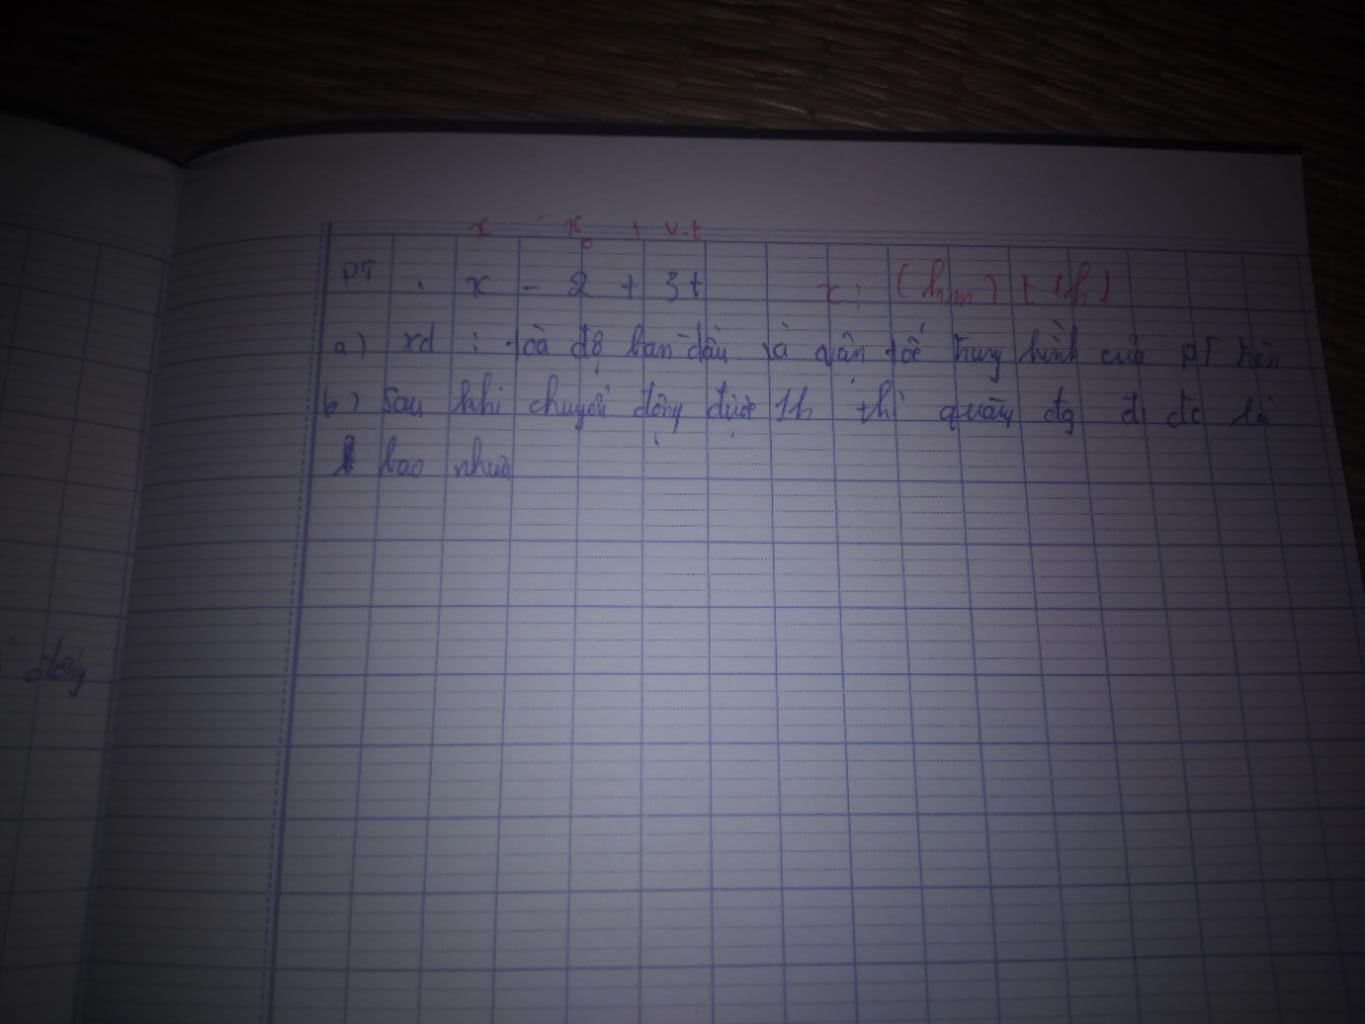 x = x₀ + v.t
PT : x = 2 + 3t x: (km) t (h)
a) xđ : toà độ ban đầu và vận tốc trung bình của PT trên
b) Sau khi chuyển động được 1h thì quãng đg đi đc là
bao nhiu
động